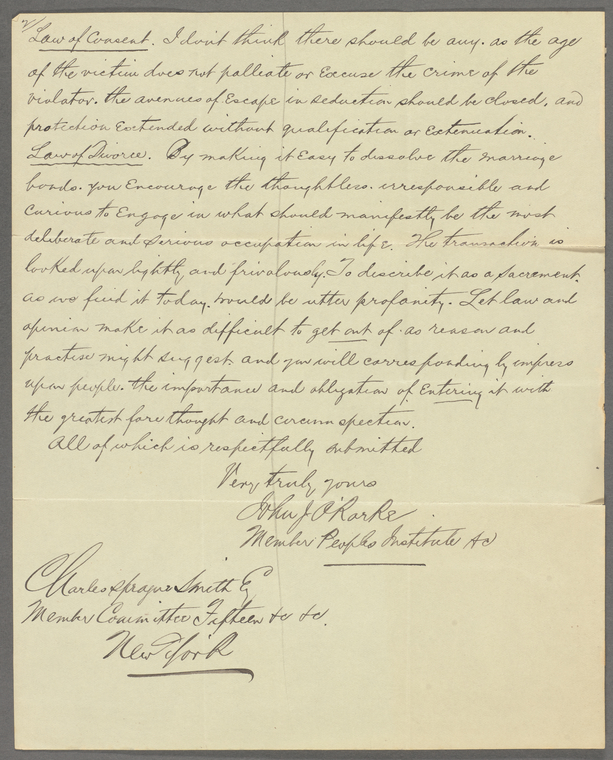 2/
Law of Consent. I don't think there should be any. as the age
of the victim does not palleate or Excuse the crime of the
violator. the avenues of Escape in seduction should be closed. and
protection Extended without qualification or Extenuation.
Law of Divorce. By making it Easy to dissolve the marriage
bonds. you Encourage the thoughtless. irresponsible and
curious to Engage in what should manifestly be the most
deliberate and serious occupation in life. The transaction is
looked upon lightly and frivolously. To describe it as a sacrement.
as we find it today. would be utter profanity. Let law and
opinion make it as difficult to get out of. as reason and
practise might suggest. and you will correspondingly impress
upon people. the importance and obligation of Entering it with
the greatest forethought and circumspection.
All of which is respectfully submitted
Very truly yours
John J. O'Rorke.
Member Peoples Institute &c
Charles Sprague Smith Eq
Member Committee Fifteen &c &c.
New York